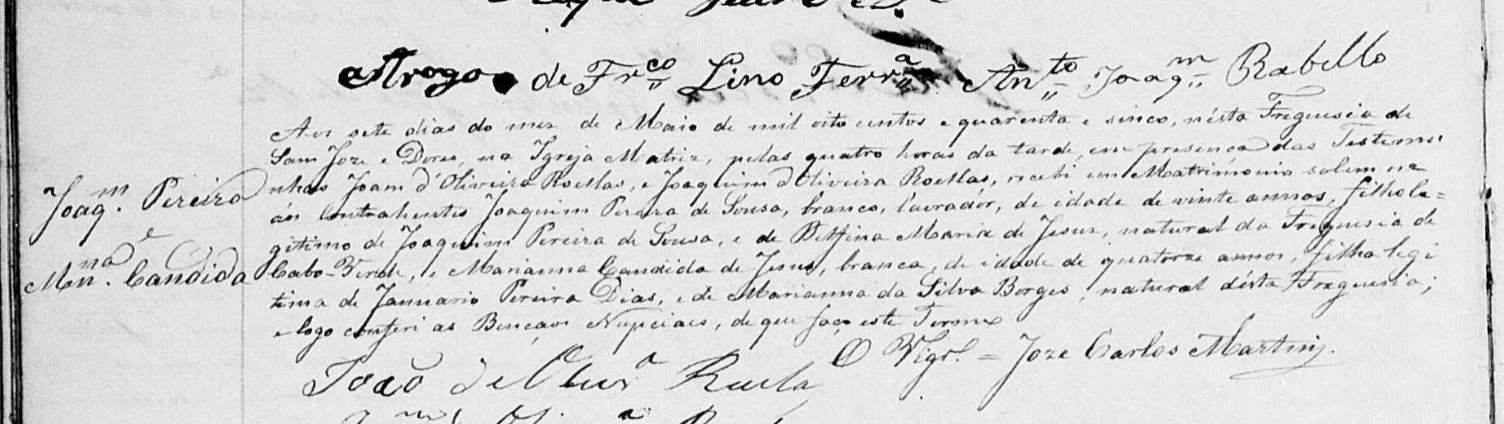 aRrogo de Fr.co Lino Ferr.a Ant.to Joaq.m Rabello
Aos sete dias do mez de Maio de mil oito centos e quarenta e sinco, nésta Freguesia de
Sam Joze e Dores, na Igreja Matriz, pelas quatro horas da tarde, em presença das Testemu
nhas Joam d'Oliveira Roellas, e Joaquim d'Oliveira Roellas, recebi em Matrimonio solemne
Joaq.m Pereira
áos Contrahentes Joaquim Pereira de Sousa, branco, lavrador, de idade de vinte annos, filho le=
e
gitimo de Joaquim Pereira de Sousa, e de Delfina Maria de Jesus, natural da Freguesia de
M.na Candida
Cabo-Verde, e Marianna Candida de Jesus, branca, de idade de quatorze annos, filha legi
tima de Januario Pereira Dias, e de Marianna da Silva Borges, natural désta Freguesia;
e logo conferi as Bençaos Nupciaes, de que faço este Termo
O Vigr.o = Joze Carlos Martins.
João de Oliv.a Ruela